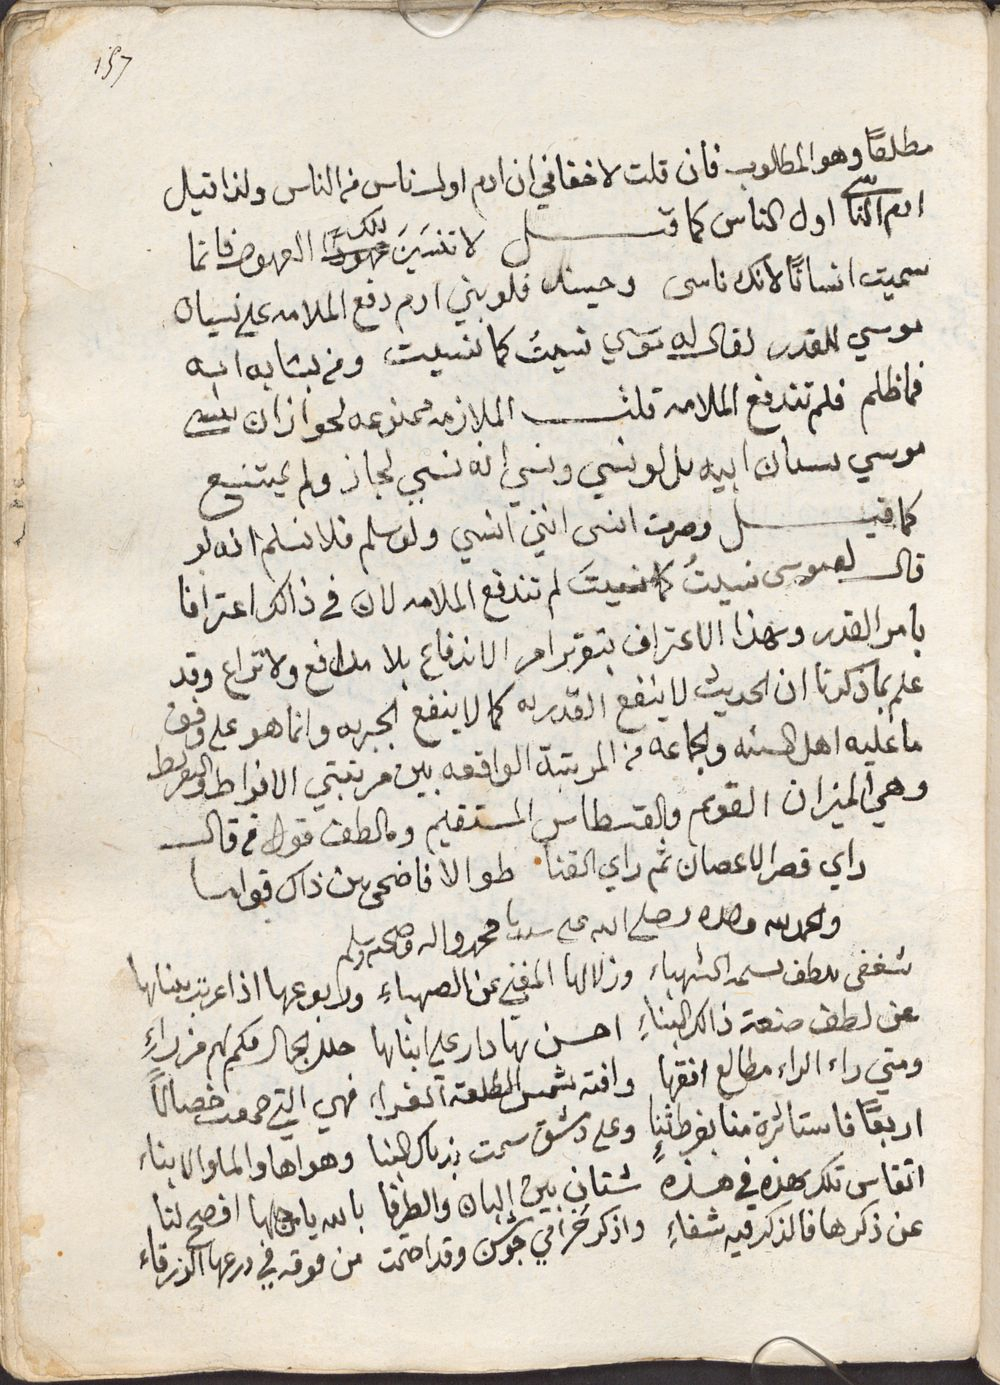 ١٥٧
مطلقًا وهو المطلوب فان قلت لا خفا في ان ادم اول ناس من الناس ولذا قيل
ادم الناسى اول الناس كما قيل لا تنسين تلك العهود فانما
سميت انسانًا لانك ناسى وحينئذ فلو بني ادم دفع الملامه على نسيان
موسي للقدر لقال له موسي نسيتُ كما نسيت ومن يشابه ابه
فما ظلم فلم تندفع الملامه قلت الملازمه ممنوعه لجواز ان
موسي نسيان ابيه بل لو نسي ونسي انه نسي لجاز ولم يمتنع
كما قيل وصرت انسى انني انسي ولو سلم فلا نسلم انه لو
قال له موسى نسيتُ كما نسيتَ لم تندفع الملامه لان في ذالك اعترافا
بامر القدر وبهذا الاعتراف يتقرر امر الاندفاع بلا مدافع ولا نزاع وقد
علم بما ذكرنا ان الحديث لا ينفع القدريه كما لا ينفع الجبريه وانما هو على وفق
ما عليه اهل السنه والجماعه من المرتبة الواقعه بين مرتبتي الافراط والتفريط
وهي الميزان القويم والقسطاس المستقيم وما لطف قول من قال
راي قصر الاغصان ثم راي القنا طوالا فاضحى بين ذاك قواما
والحمد لله وحده وصلى الله على سيدنا محمد واله وصحبه وسلم
شغفي بلطف نسمة الشهباء وزلالها المغني عن الصهباءِ وربوعها اذا عربت ببنائها
عن لطف صنعة ذالك البناءِ احسن بها دار على ابنائها حلل الجمال فكم لهم من راءِ
ومتي راء الراء مطالع افقها وافته شمس الطلعة الغراء فهي التي جمعت خصالًا
اربعًا فاستاثرة منا بفرط ثناٍ وعلى دمشق سمت بذياك الهنا وهواها والما والابناء
اتقاس تلك بهذه في هذه شتان بين البان والطرفا بالله يا افصح لنا
عن ذكرها فالذكر فيه شفاءِ واذكر خزامي جوشن وقد اضحت من فوقه في درعها الزرقاء